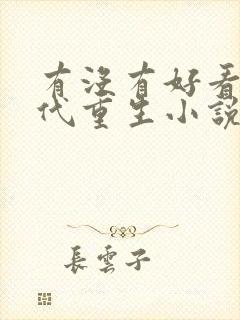 有沒有好看
代重生小說
長雲子